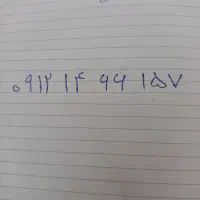 ۰۹۱۲ ۱۴ ۹۶ ۱۵۷